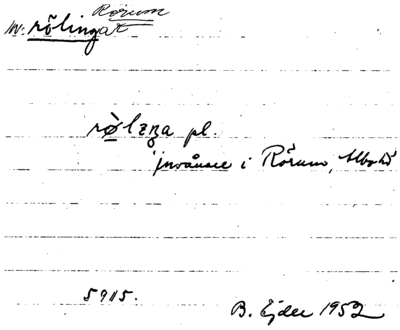 Rörum
m. rölingar
rølŋa pl.
invånare i Rörum, Albo hd
5915.
B. Ejder 1952